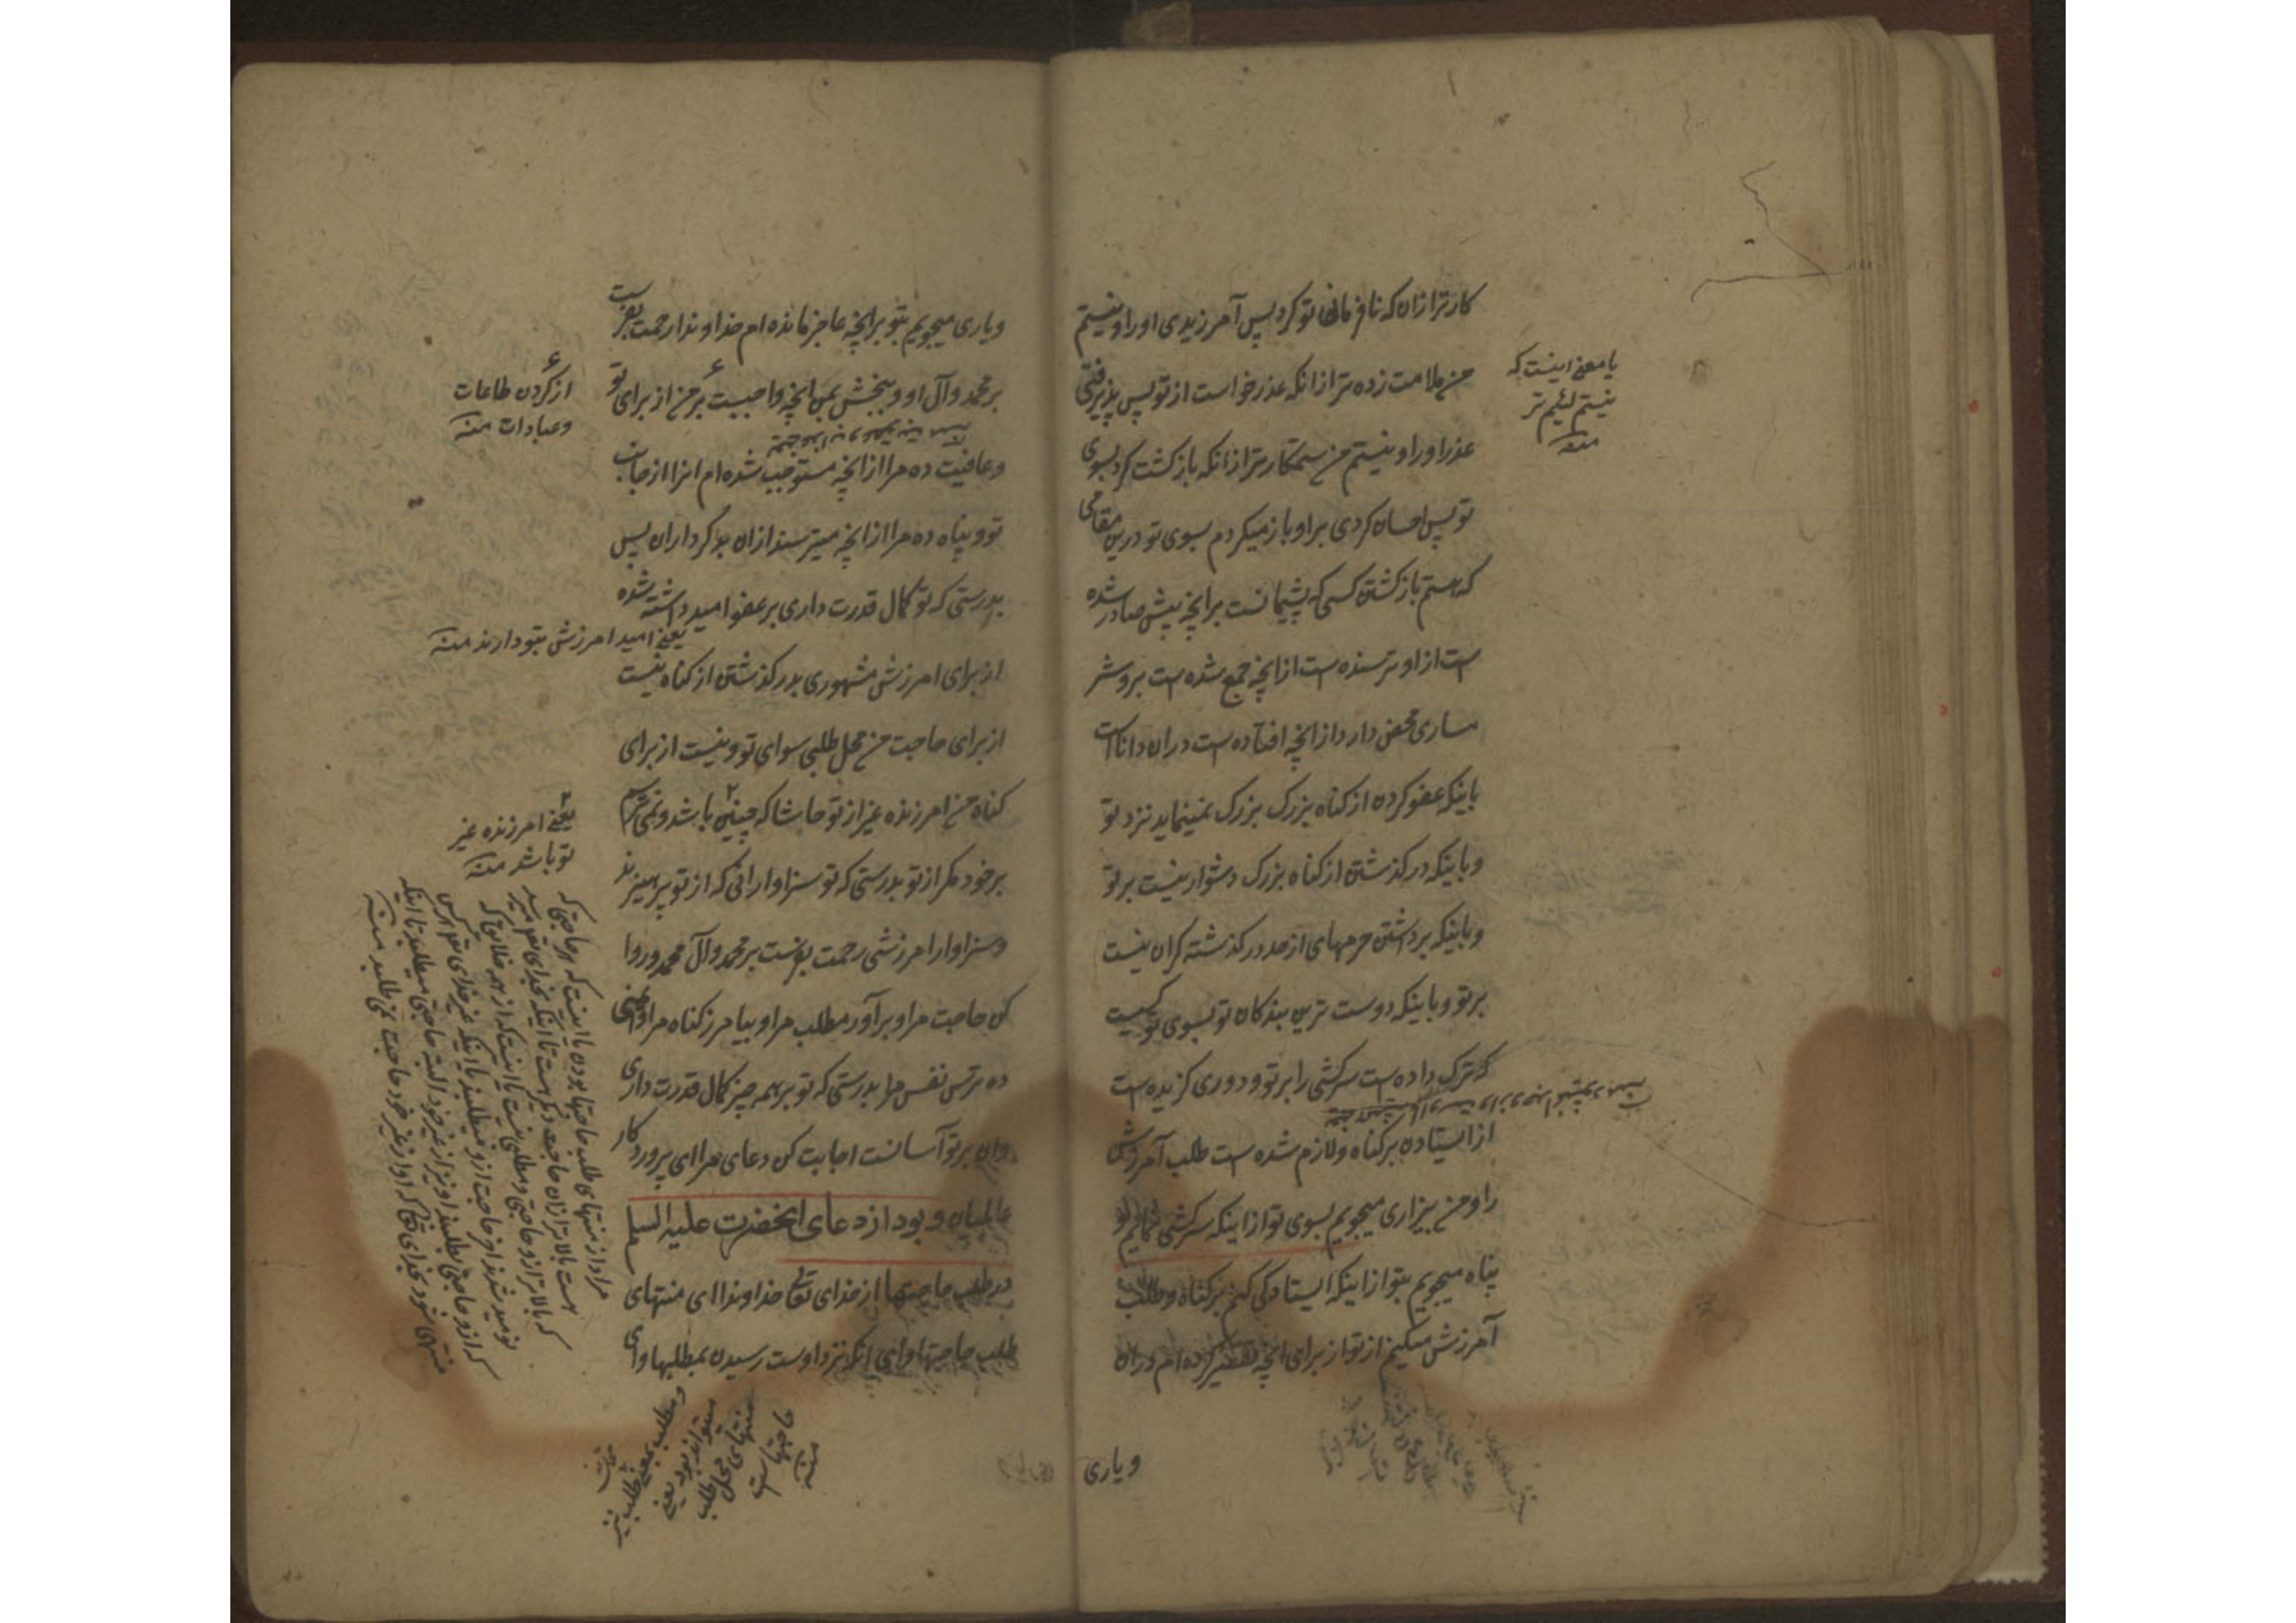 کارتر ازان که نافرمانی تو کرد پس آمرزیدی او را و نیستم
من ملامت زده تر از انکه عذر خواست از تو پس پذیرفتی
عذر او را و نیستم من ستمکارتر از انکه بازکشت کرد بسوی
تو پس احسان کردی بر او باز میکردم بسوی تو درین مقامی
که هستم بازکشتن کسی که پشیمانست برانچه پیش صادر شده
است از او ترسنده است از انچه جمع شده است بروشر
ساری محض دارد از انچه افتاده است دران داناست
باینکه عفو کردن از کناه بزرک بزرک نمینماید نزد تو
و باینکه در کذشتن از کناه بزرک دشوار نیست بر تو
و باینکه برداشتن جرمهای از حد در کذشته کران نیست
بر تو و باینکه دوست ترین بندکان تو بسوی تو کسیست
که ترک داده است سرکشی را بر تو و دوری کزیده است
از ایستادن بر کناه و لازم شده است طلب آمرزش
را و من بیزاری میجویم بسوی تو از اینکه سرکشی نمایم و
پناه میجویم بتو از اینکه ایستادکی کنم بر کناه و طلب
آمرزش میکنم از تو از برای انچه تقصیر کرده ام دران
ویاری
یا معنی اینست که
نیستم لئیم تر
منه
ویاری میجویم بتو برانچه عاجز مانده ام خداوندا رحمت بفرست
بر محمد و آل او و ببخش بمن انچه واجبست بر من از برای تو
و عافیت ده مرا از انچه مستوجب شده ام انرا از جانب
تو و پناه ده مرا از انچه میترسند ازان بدکرداران پس
بدرستی که تو کمال قدرت داری بر عفو امید داشته شده
از برای امرزش مشهوری بدر کذشتن از کناه نیست
از برای حاجت من محل طلبی سوای تو و نیست از برای
کناه من امرزنده غیر از تو حاشا که چنین باشد و نمی ترسم
بر خود مکر از تو بدرستی که تو سزاوار انی که از تو پرهیزند
و سزاوار امرزشی رحمت بفرست بر محمد و آل محمد و روا
کن حاجت مرا و برآور مطلب مرا و بیامرز کناه مرا و ایمنی
ده ترس نفس مرا بدرستی که تو بر همه چیز کمال قدرت داری
وان بر تو آسانست اجابت کن دعای مرا ای پروردکار
عالمیان و بود از دعای انحضرت علیه السلم
در طلب حاجتها از خدای تعالی خداوندا ای منتهای
طلب حاجتها و ای انکه نزد اوست رسیدن بمطلبها و ای
از کردن طاعات
و عبادات منه
یعنی امید امرزش بتو دارند منه
یعنی امرزنده غیر
تو باشد منه
مراد از منتهای طلب حاجتها بودن یا اینست که هر حاجتی که
هست بالاتر ازان حاجت دیکر هست تا اینکه بخدای تعالی میرسد
که بالاتر از و حاجتی و مطلبی نیست یا اینست که از همه خلایق که
نومید شدند اخر حاجت از و میطلبند
و مطلب بمعنی طلب نیز
میتواند بود یعنی
منتهای محل طلب
حاجتهاست
منه